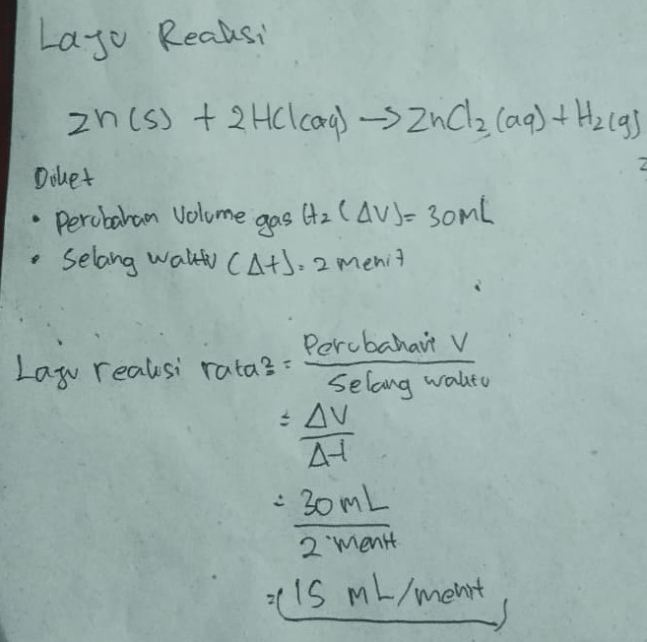 Laju Reaksi
Zn(s) + 2HCl(aq) → ZnCl₂(aq) + H₂(g)
Diket
• Perubahan Volume gas H₂ (ΔV) = 30 mL
• Selang waktu (Δt) = 2 menit
Laju reaksi rata² = Perubahan V
Selang waktu
= ΔV
Δt
= 30 mL
2 menit
= 15 mL/menit